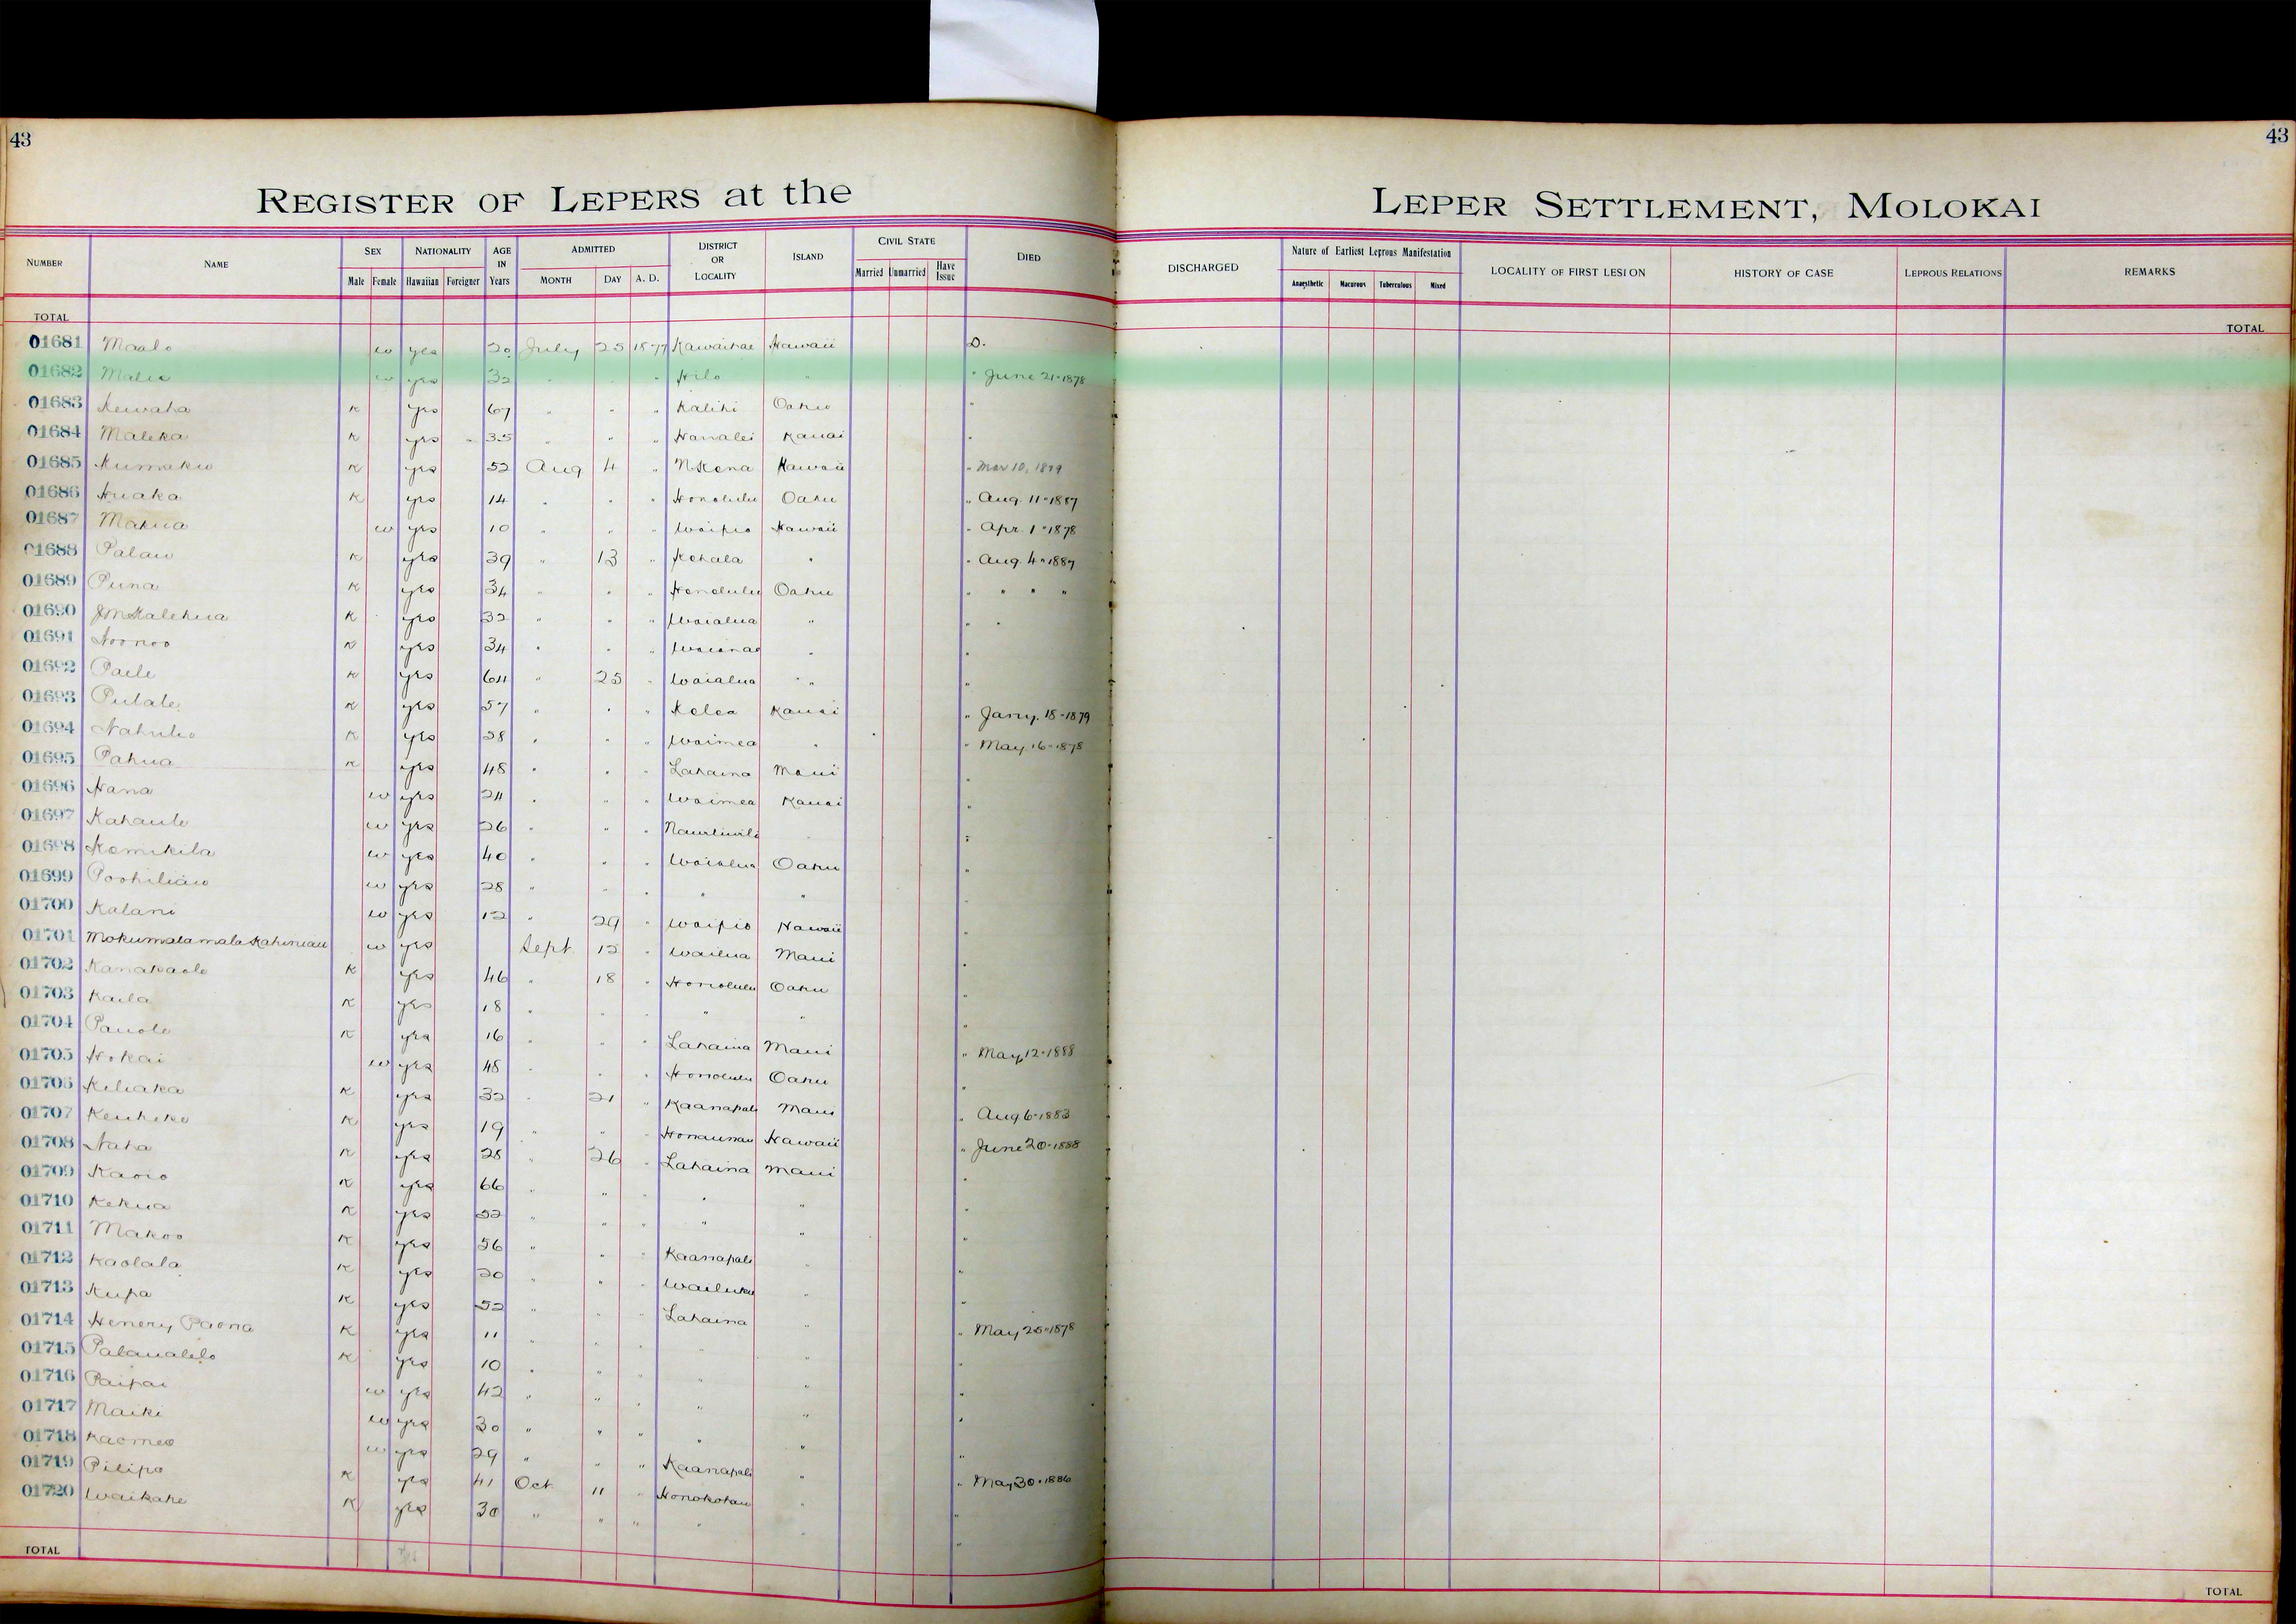 43
43
REGISTER OF LEPERS at the
LEPER SETTLEMENT, MOLOKAI
NUMBER NAME SEX Male Female NATIONALITY Hawaiian Foreigner AGE IN Years ADMITTED MONTH DAY A. D. DISTRICT OR LOCALITY ISLAND CIVIL STATE Married Unmarried Have Issue DIED
DISCHARGED Nature of Earliest Leprous Manifestation Anaesthetic Macurous Tuberculous Mixed LOCALITY OF FIRST LESION HISTORY OF CASE LEPROUS RELATIONS REMARKS
TOTAL
TOTAL
01681 Maalo w yes 20 July 25 1877 Kawaihae Hawaii D.
01682 w yes 32 " " " Hilo " " June 21-1878
01683 Kewaha K yes 67 " " " Kalihi Oahu "
01684 Maleka K yes 35 " " " Hanalei Kauai "
01685 Kumaku K yes 52 Aug 4 " N. Kona Hawaii " Mar 10, 1879
01686 Huaka K yes 14 " " " Honolulu Oahu " Aug. 11-1887
01687 Mahua w yes 10 " " " Waipio Hawaii " Apr. 1-1878
01688 Palau K yes 39 " 13 " Kohala " " Aug. 4-1887
01689 Puna K yes 34 " " " Honolulu Oahu " " " "
01690 J M Kalehua K yes 32 " " " Waialua " " "
01691 Noonoo K yes 34 " " " Waianae " "
01692 Paele K yes 64 " 25 " Waialua " "
01693 Pulale K yes 57 " " " Kolea Kauai " Jany. 18-1879
01694 K yes 28 " " " Waimea " " May. 16-1878
01695 Pahua K yes 48 " " " Lahaina Maui "
01696 Hana w yes 24 " " " Waimea Kauai "
01697 Kahaule w yes 26 " " " "
01698 Kamikila w yes 40 " " " Waialua Oahu "
01699 Poohiliau w yes 28 " " " " "
01700 Kalani w yes 12 " 29 " Waipio Hawaii
01701 Mokumalamala Kahiniau w yes Sept 12 " Wailua Maui "
01702 Kanakaole K yes 46 " 18 " Honolulu Oahu "
01703 Kaila K yes 18 " " " " " "
01704 Paaole K yes 16 " " " Lahaina Maui " May 12-1888
01705 Hokai w yes 48 " " " Honolulu Oahu "
01706 Keliaka K yes 32 " 21 " Kaanapali Maui " Aug 6-1883
01707 K yes 19 " " " Honaunau Hawaii " June 20-1888
01708 Naha K yes 28 " 26 " Lahaina Maui "
01709 K yes 66 " " " " " "
01710 Kekua K yes 52 " " " " " "
01711 Makoo K yes 56 " " " Kaanapali " "
01712 Kaolala K yes 20 " " " Wailuku " "
01713 Kupa K yes 52 " " " Lahaina " " May 25-1878
01714 Henery Paona K yes 11 " " " " " "
01715 Palaualelo K yes 10 " " " " " "
01716 Paipai w yes 42 " " " " " "
01717 Maiki w yes 30 " " " " " "
01718 Kaomea w yes 29 " " " Kaanapali " " May 30-1886
01719 Pilipo K yes 41 Oct 11 " Honokohau " "
01720 Waikahe K yes 30 " " " " " "
TOTAL
TOTAL